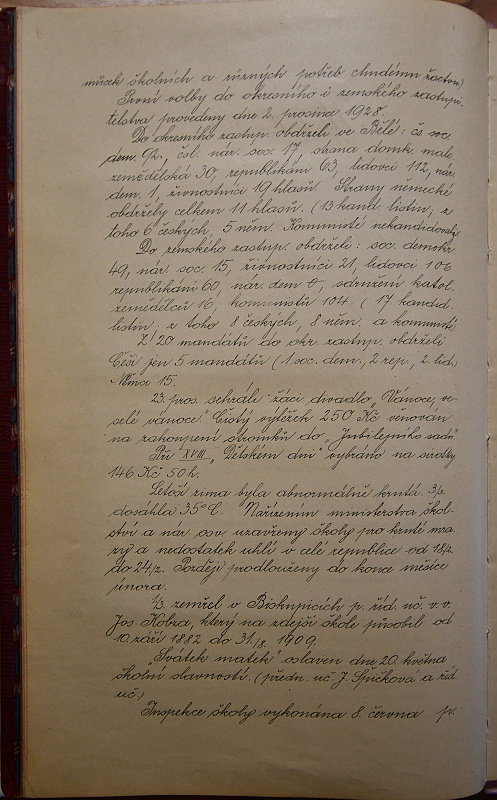 můcek školních a různých potřeb chudému žactvu)
První volby do okresního i zemského zastupi-
telstva provedeny dne 2. prosince 1928.
Do okresního zastup. obdrželi ve Bělé: čs soc.
dem. 92, čsl. nár. soc. 17, strana domk. malo
zemědělská 30, republikáni 63, lidovci 112, nár.
dem. 1, živnostníci 19 hlasů. Strany německé
obdržely celkem 11 hlasů. (13 kand. listin, z
toho 6 českých, 5 něm. Komunisté nekandidovaly.
Do zemského zastup. obdrželi: soc. demokr.
49, nár. soc. 15, živnostníci 21, lidovci 106
republikáni 60, nár. dem 0, sdružení katol.
zemědělců 16, komunistů 104 (17 kandid.
listin, z toho 8 českých, 8 něm. a komunisté
Z 20 mandátů do okr. zastup. obdrželi
Češi jen 5 mandátů (1 soc. dem., 2 rep., 2. lid.)
Němci 15.
23. pros. sehráli žáci divadlo „Vánoce, ve-
selé vánoce." Čistý výtěžek 250 Kč věnován
na zakoupení stromků do „Jubilejního sadu"
Při XVIII. „Dětském dni" vybráno na sirotky
146 Kč 50 h.
Letoší zima byla abnormálně krutá. 3/2.
dosáhla 35° C. Nařízením ministerstva škol-
ství a nár. osv. uzavřeny školy pro kruté mra-
zy a nedostatek uhlí v celé republice od 18/2.
do 24/2. Později prodlouženy do konce měsíce
února.
1/3. zemřel v Biskupicích p. říd. uč. v. v.
Jos. Kobza, který na zdejší škole působil od
10. září 1882 do 31/8. 1909.
„Svátek matek" oslaven dne 20. května
školní slavností. (předn. uč J. Spičkova a říd.
uč.)
Inspekce školy vykonána 8. června p.